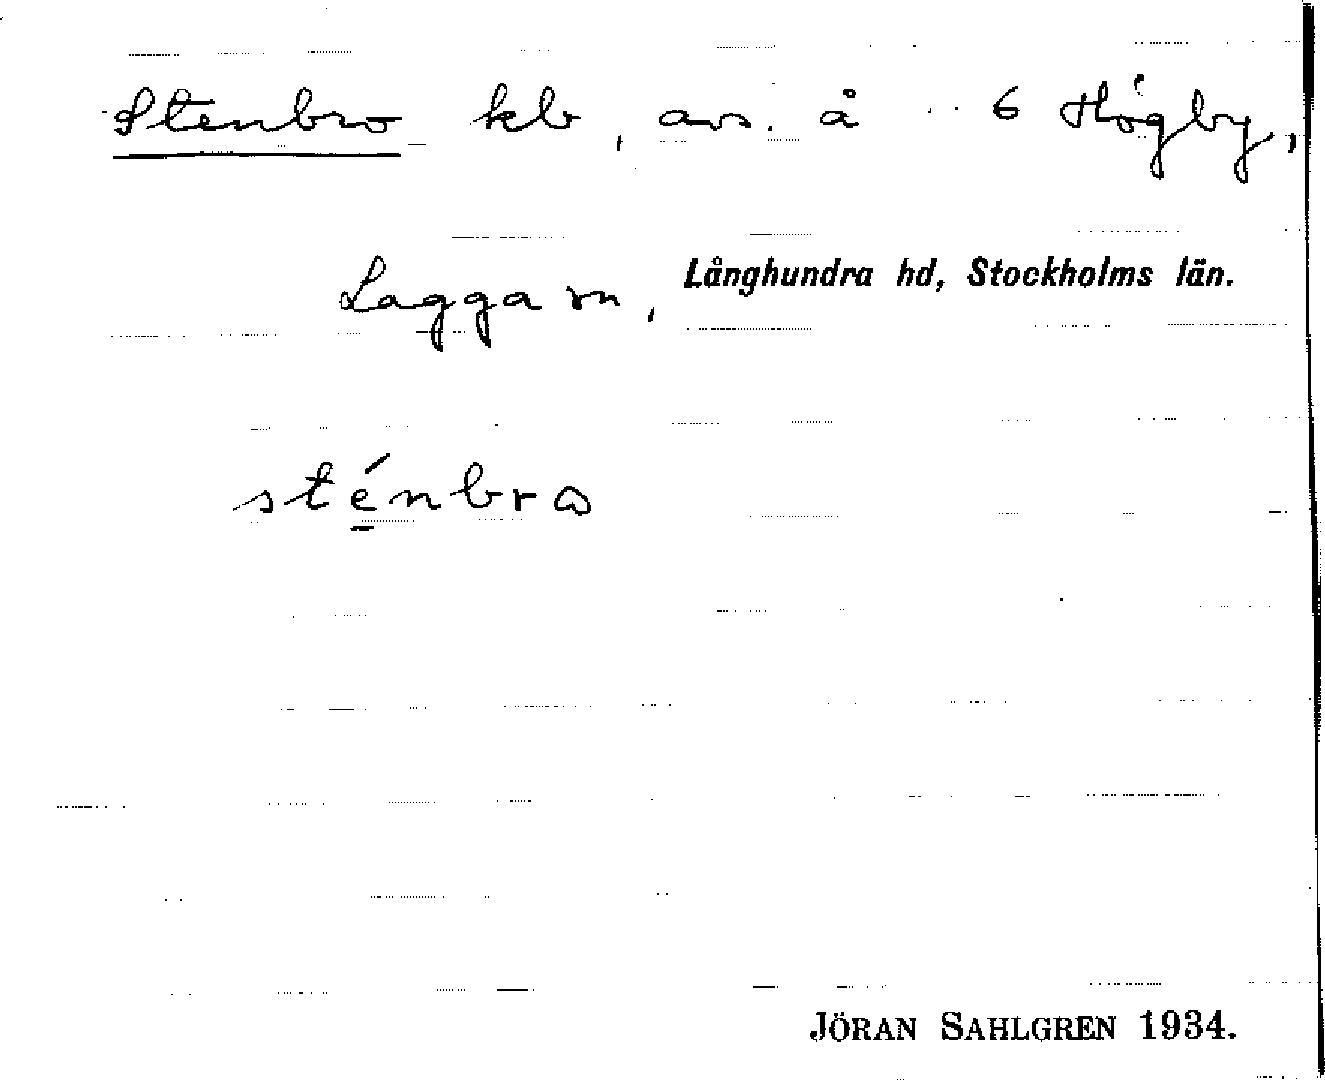 Stenbro kb, avs. å 6 Högby,
Lagga sn, Långhundra hd, Stockholms län.
sté̱nbrω
JÖRAN SAHLGREN 1934.